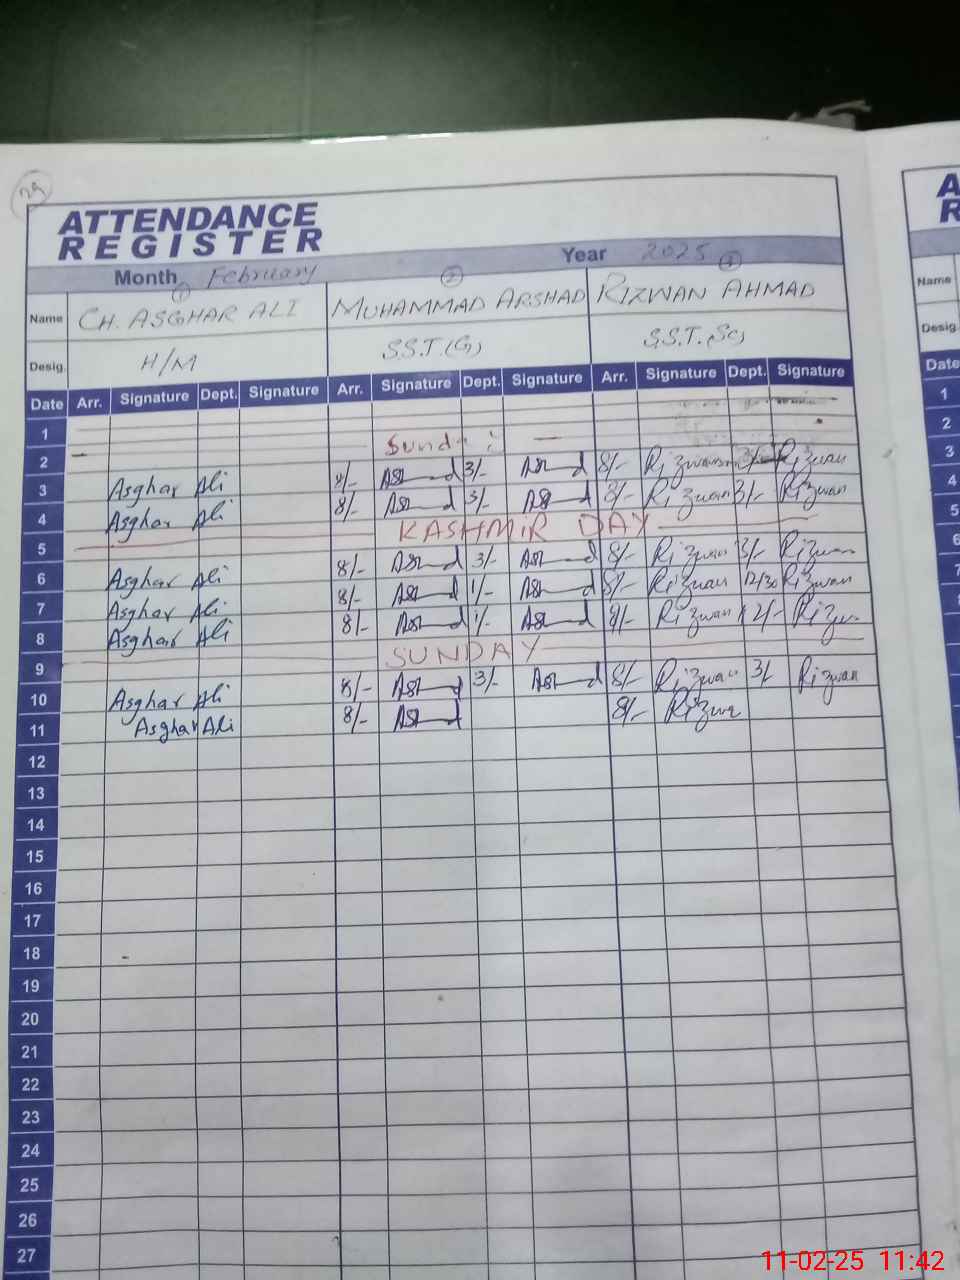 29
ATTENDANCE
REGISTER
Month February Year 2025
1 2 3
Name CH. ASGHAR ALI MUHAMMAD ARSHAD RIZWAN AHMAD
Desig. H/M S.S.T.(G) S.S.T.(Sc)
Date Arr. Signature Dept. Signature Arr. Signature Dept. Signature Arr. Signature Dept. Signature
1
2 Sunday
3 Asghar Ali 8/- 3/- 8/- Rizwan 3/- Rizwan
4 Asghar Ali 8/- 3/- 8/- Rizwan 3/- Rizwan
5 KASHMIR DAY
6 Asghar Ali 8/- 3/- 8/- Rizwan 3/- Rizwan
7 Asghar Ali 8/- 1/- 8/- Rizwan 12/30 Rizwan
8 Asghar Ali 8/- 1/- 8/- Rizwan 12/- Rizwan
9 SUNDAY
10 Asghar Ali 8/- 3/- 8/- Rizwan 3/- Rizwan
11 Asghar Ali 8/- 8/- Rizwan
12
13
14
15
16
17
18
19
20
21
22
23
24
25
26
27
A
R
Name
Desig.
Date
1
2
3
4
5
6
7
11-02-25 11:42